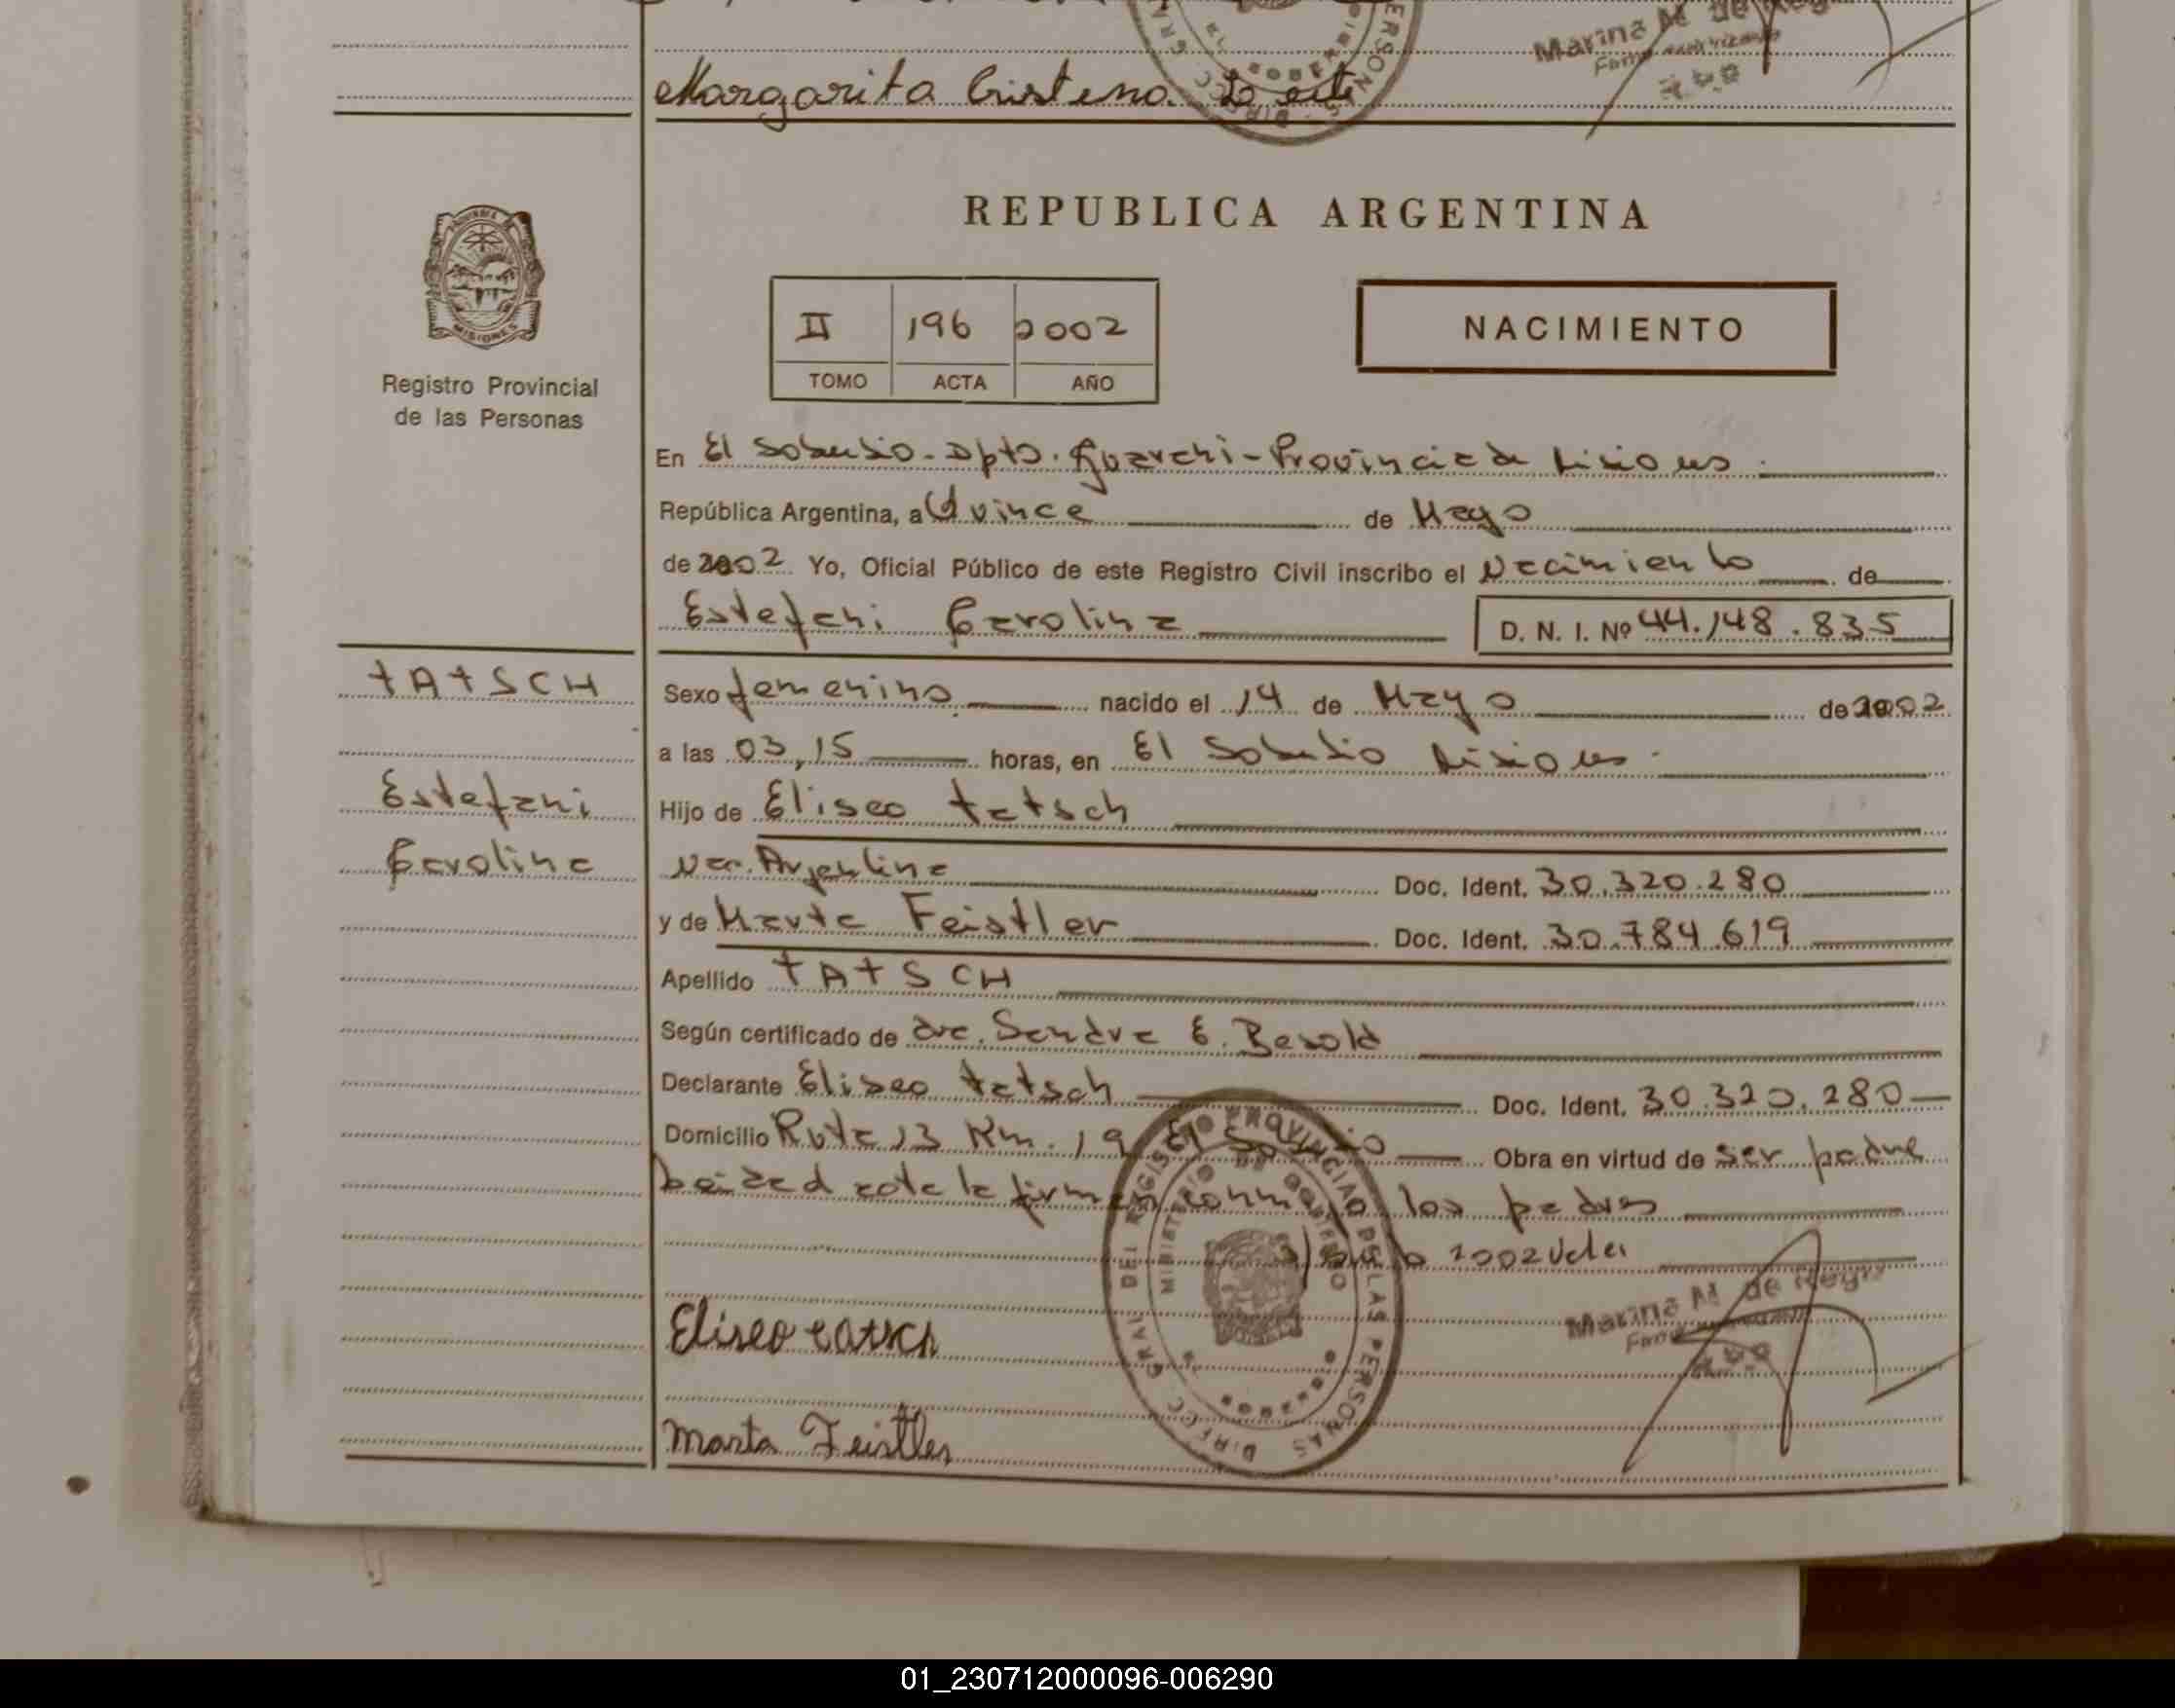 Margarita Cristena
Marina M de Rey
REPUBLICA ARGENTINA
II 196 2002
TOMO ACTA AÑO
NACIMIENTO
MISIONES
Registro Provincial
de las Personas
En El Soberbio - Dpto. Guarani - Provincia de Misiones.
República Argentina, a Quince de Mayo
de 2002 Yo, Oficial Público de este Registro Civil inscribo el Nacimiento de
Estefani Carolina D. N. I. Nº 44.148.835
TATSCH
Sexo femenino nacido el 14 de Mayo de 2002
a las 03,15 horas, en El Soberbio Misiones.
Estefani
Hijo de Eliseo Tatsch
Carolina
Nac. Argentina Doc. Ident. 30.320.280
y de Marta Feistler Doc. Ident. 30.784.619
Apellido TATSCH
Según certificado de dra. Sandra E. Besold
Declarante Eliseo Tatsch Doc. Ident. 30.320.280
Domicilio Ruta 13 Km. 19 El Obra en virtud de ser padre
leida el acta la firman los padres
2002 Vale
DIRECC GRAL DEL REGISTRO PROVINCIAL DE LAS PERSONAS
MINISTERIO DE GOBIERNO
Marina M de Rey
Eliseo tatsch
Marta Feistler
01_230712000096-006290